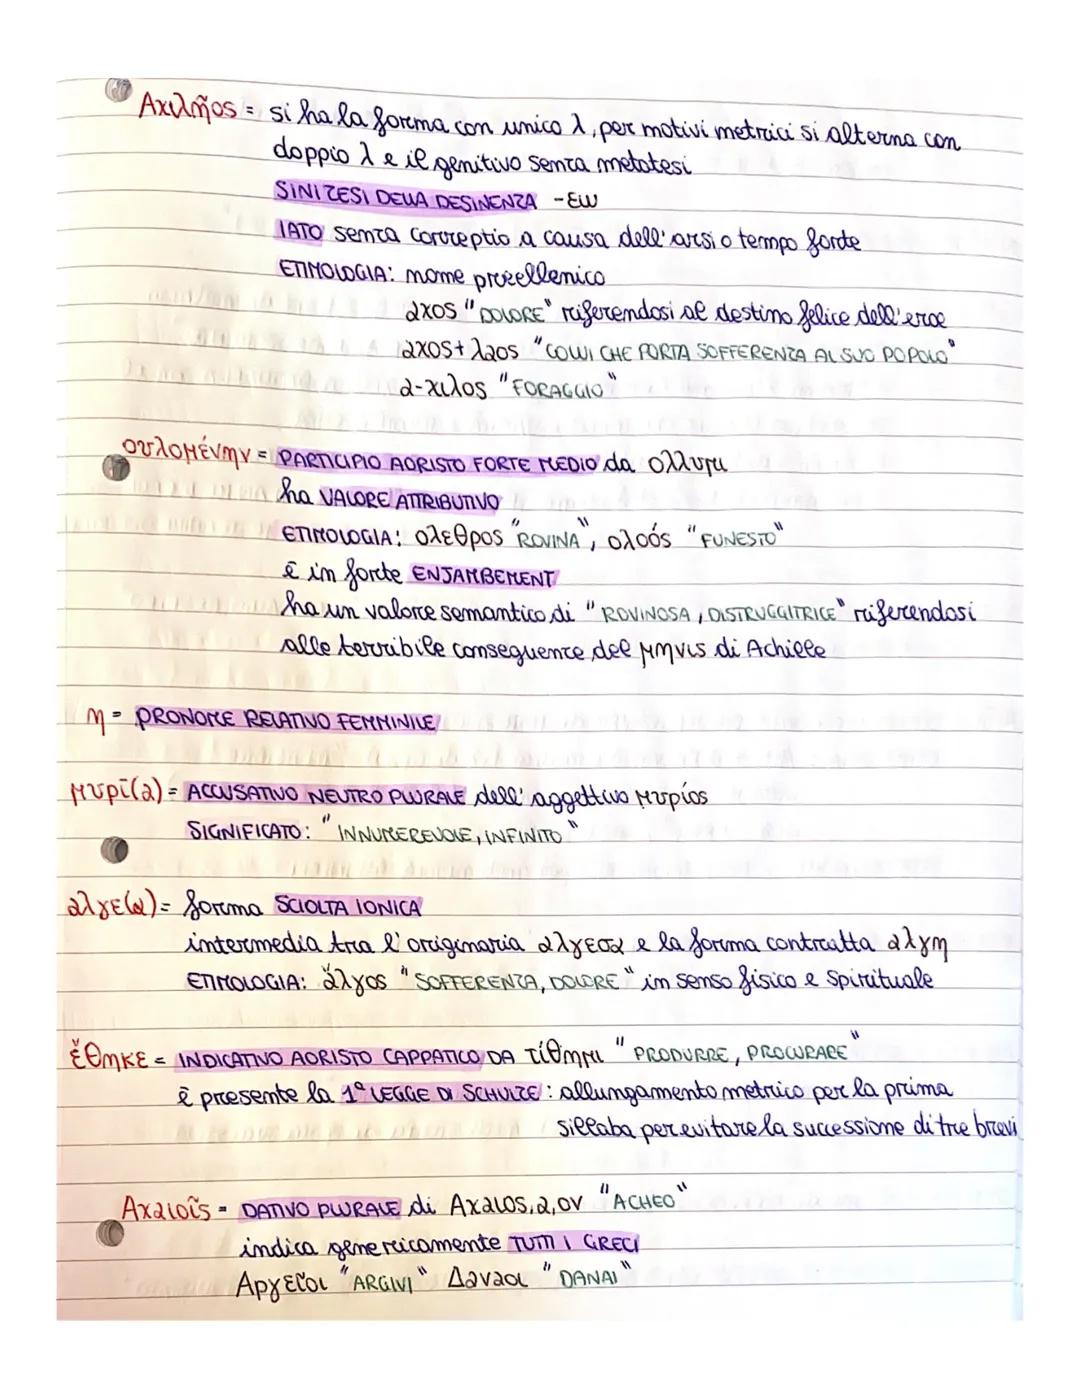 Αχιλῆος = si ha la forma con unico λ, per motivi metrici si alterna con
doppio λ e il genitivo senza metatesi
SINIZESI DELLA DESINENZA -εω
IATO senza correptio a causa dell'arsi o tempo forte
ETIMOLOGIA: nome preellenico
αχος "DOLORE" riferendosi al destino felice dell'eroe
αχος + λαος "COLUI CHE PORTA SOFFERENZA AL SUO POPOLO"
α-χιλος "FORAGGIO"
ουλομένην = PARTICIPIO AORISTO FORTE MEDIO da ολλυμι
ha VALORE ATTRIBUTIVO
ETIMOLOGIA: ολεθρος "ROVINA", ολοός "FUNESTO"
è in forte ENJAMBEMENT
ha un valore semantico di "ROVINOSA, DISTRUGGITRICE" riferendosi
alle terribile conseguence del μηνις di Achille
η = PRONOME RELATIVO FEMMINILE
μυρί(α) = ACCUSATIVO NEUTRO PLURALE dell'aggettivo μυρίος
SIGNIFICATO: "INNUMEREVOLE, INFINITO"
αλγε(α) = forma SCIOLTA IONICA
intermedia tra l'originaria αλγεσα e la forma contratta αλγη
ETIMOLOGIA: ἄλγος "SOFFERENZA, DOLORE" in senso fisico e spirituale
ἔθηκε = INDICATIVO AORISTO CAPPATICO DA τίθημι "PRODURRE, PROCURARE"
è presente la 1° LEGGE DI SCHULZE: allungamento metrico per la prima
sillaba per evitare la successione di tre brevi
Αχαιοῖς = DATIVO PLURALE di Αχαιος, α, ον "ACHEO"
indica genericamente TUTTI I GRECI
Αργεῖοι "ARGIVI" Δαναοι "DANAI"